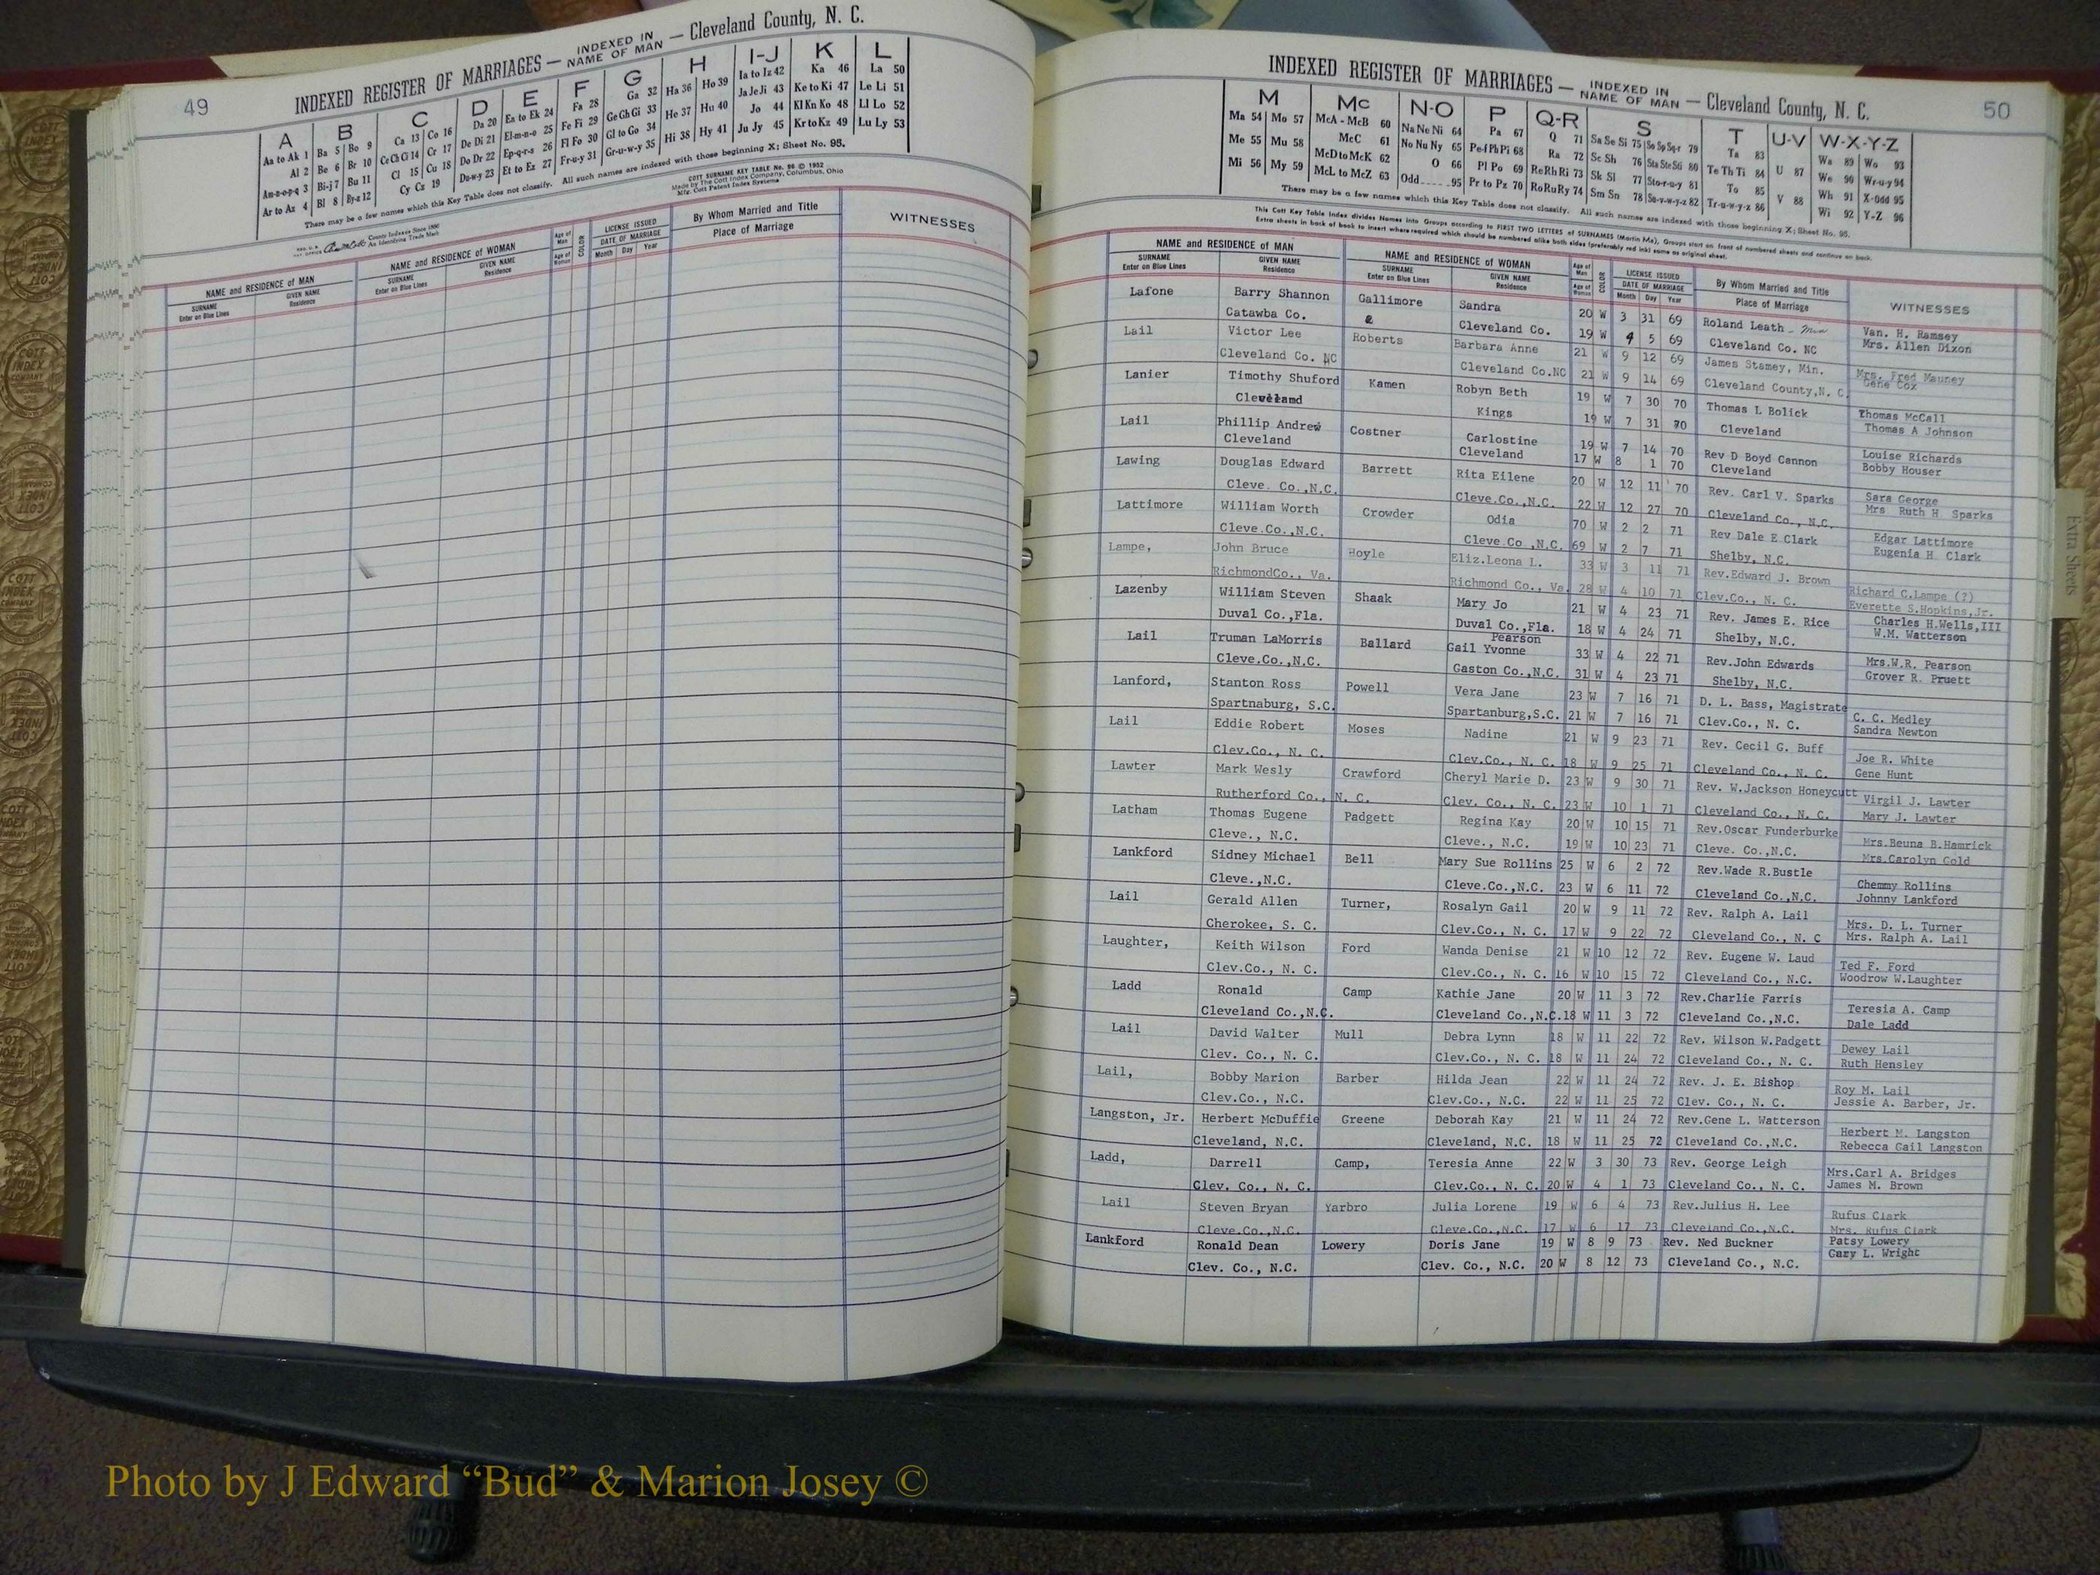 49
INDEXED REGISTER OF MARRIAGES — INDEXED IN NAME OF MAN — Cleveland County, N. C.
A B C D E F G H I-J K L
Aa to Ak 1 Ba 5 Bo 9 Ca 13 Co 16 Da 20 Ea to Ek 24 Fa 28 Ga 32 Ha 36 Ho 39 Ia to Iz 42 Ka 46 La 50
Al 2 Be 6 Br 10 Ce Ch Ci 14 Cr 17 De Di 21 El-m-n-o 25 Fe Fi 29 Ge Gh Gi 33 He 37 Hu 40 Ja Je Ji 43 Ke to Ki 47 Le Li 51
Am-n-o-p-q 3 Bi-j 7 Bu 11 Cl 15 Cu 18 Do Dr 22 Ep-q-r-s 26 Fl Fo 30 Gl to Go 34 Hi 38 Hy 41 Jo 44 Kl Kn Ko 48 Ll Lo 52
Ar to Az 4 Bl 8 By-z 12 Cy Cz 19 Du-w-y 23 Et to Ez 27 Fr-u-y 31 Gr-u-w-y 35 Ju Jy 45 Kr to Kz 49 Lu Ly 53
There may be a few names which this Key Table does not classify. All such names are indexed with those beginning X; Sheet No. 95.
COTT SURNAME KEY TABLE No. 96 © 1952
Made by The Cott Index Company, Columbus, Ohio
Mfg. Cott Patent Index Systems
County Indexes Since 1886
An Identifying Trade Mark
NAME and RESIDENCE OF MAN NAME and RESIDENCE OF WOMAN Age of Man Age of Woman COLOR LICENSE ISSUED By Whom Married and Title WITNESSES
SURNAME GIVEN NAME SURNAME GIVEN NAME DATE OF MARRIAGE Place of Marriage
Enter on Blue Lines Residence Enter on Blue Lines Residence Month Day Year
INDEXED REGISTER OF MARRIAGES — INDEXED IN NAME OF MAN — Cleveland County, N. C. 50
M Mc N-O P Q-R S T U-V W-X-Y-Z
Ma 54 Mo 57 McA - McB 60 Na Ne Ni 64 Pa 67 Q 71 Sa Se Si 75 So Sp Sq-r 79 Ta 83 U 87 Wa 89 Wo 93
Me 55 Mu 58 McC 61 No Nu Ny 65 Pe-f Ph Pi 68 Ra 72 Sc Sh 76 Sta Ste Sti 80 Te Th Ti 84 V 88 We 90 Wr-u-y 94
Mi 56 My 59 McD to McK 62 O 66 Pl Po 69 Re Rh Ri 73 Sk Sl 77 Sto-r-u-y 81 To 85 Wh 91 X-Odd 95
McL to McZ 63 Odd 95 Pr to Pz 70 Ro Ru Ry 74 Sm Sn 78 Su-v-w-y-z 82 Tr-u-w-y-z 86 Wi 92 Y-Z 96
There may be a few names which this Key Table does not classify. All such names are indexed with those beginning X; Sheet No. 95.
This Cott Key Table Index divides Names into Groups according to FIRST TWO LETTERS of SURNAMES (Martin Ma), Groups start on front of numbered sheets and continue on back.
Extra sheets in back of book to insert where required which should be numbered alike both sides (preferably red ink) same as original sheet.
NAME and RESIDENCE OF MAN NAME and RESIDENCE OF WOMAN Age of Man Age of Woman COLOR LICENSE ISSUED By Whom Married and Title WITNESSES
SURNAME GIVEN NAME SURNAME GIVEN NAME DATE OF MARRIAGE Place of Marriage
Enter on Blue Lines Residence Enter on Blue Lines Residence Month Day Year
Lafone Barry Shannon Gallimore Sandra 20 W 3 31 69 Roland Leath - Min Van. H. Ramsey
Catawba Co. Cleveland Co. 19 W 4 5 69 Cleveland Co. NC Mrs. Allen Dixon
Lail Victor Lee Roberts Barbara Anne 21 W 9 12 69 James Stamey, Min. Mrs. Fred Mauney
Cleveland Co. NC Cleveland Co.NC 21 W 9 14 69 Cleveland County,N. C. Gene Cox
Lanier Timothy Shuford Kamen Robyn Beth 19 W 7 30 70 Thomas L Bolick Thomas McCall
Cleveland Kings 19 W 7 31 70 Cleveland Thomas A Johnson
Lail Phillip Andrew Costner Carlostine 19 W 7 14 70 Rev D Boyd Cannon Louise Richards
Cleveland Cleveland 17 W 8 1 70 Cleveland Bobby Houser
Lawing Douglas Edward Barrett Rita Eilene 20 W 12 11 70 Rev. Carl V. Sparks Sara George
Cleve. Co.,N.C. Cleve.Co.,N.C. 22 W 12 27 70 Cleveland Co., N.C. Mrs Ruth H Sparks
Lattimore William Worth Crowder Odia 70 W 2 2 71 Rev Dale E Clark Edgar Lattimore
Cleve.Co.,N.C. Cleve Co ,N.C. 69 W 2 7 71 Shelby, N.C. Eugenia H Clark
Lampe, John Bruce Hoyle Eliz.Leona L. 33 W 3 11 71 Rev.Edward J. Brown Richard C.Lampe (?)
RichmondCo., Va. Richmond Co., Va. 28 W 4 10 71 Clev.Co., N. C. Everette S.Hopkins,Jr.
Lazenby William Steven Shaak Mary Jo 21 W 4 23 71 Rev. James E. Rice Charles H.Wells,III
Duval Co.,Fla. Duval Co.,Fla. 18 W 4 24 71 Shelby, N.C. W.M. Watterson
Lail Truman LaMorris Ballard Gail Yvonne Pearson 33 W 4 22 71 Rev.John Edwards Mrs.W.R. Pearson
Cleve.Co.,N.C. Gaston Co.,N.C. 31 W 4 23 71 Shelby, N.C. Grover R. Pruett
Lanford, Stanton Ross Powell Vera Jane 23 W 7 16 71 D. L. Bass, Magistrate C. C. Medley
Spartnaburg, S.C. Spartanburg,S.C. 21 W 7 16 71 Clev.Co., N. C. Sandra Newton
Lail Eddie Robert Moses Nadine 21 W 9 23 71 Rev. Cecil G. Buff Joe R. White
Clev.Co., N. C. Clev.Co., N. C. 18 W 9 25 71 Cleveland Co., N. C. Gene Hunt
Lawter Mark Wesly Crawford Cheryl Marie D. 23 W 9 30 71 Rev. W.Jackson Honeycutt Virgil J. Lawter
Rutherford Co., N. C. Clev. Co., N. C. 23 W 10 1 71 Cleveland Co., N. C. Mary J. Lawter
Latham Thomas Eugene Padgett Regina Kay 20 W 10 15 71 Rev.Oscar Funderburke Mrs.Beuna B.Hamrick
Cleve., N.C. Cleve., N.C. 19 W 10 23 71 Cleve. Co.,N.C. Mrs.Carolyn Gold
Lankford Sidney Michael Bell Mary Sue Rollins 25 W 6 2 72 Rev.Wade R.Bustle Chemmy Rollins
Cleve.,N.C. Cleve.Co.,N.C. 23 W 6 11 72 Cleveland Co.,N.C. Johnny Lankford
Lail Gerald Allen Turner, Rosalyn Gail 20 W 9 11 72 Rev. Ralph A. Lail Mrs. D. L. Turner
Cherokee, S. C. Clev.Co., N. C. 17 W 9 22 72 Cleveland Co., N. C Mrs. Ralph A. Lail
Laughter, Keith Wilson Ford Wanda Denise 21 W 10 12 72 Rev. Eugene W. Laud Ted F. Ford
Clev.Co., N. C. Clev.Co., N. C. 16 W 10 15 72 Cleveland Co., N.C. Woodrow W.Laughter
Ladd Ronald Camp Kathie Jane 20 W 11 3 72 Rev.Charlie Farris Teresia A. Camp
Cleveland Co.,N.C. Cleveland Co.,N.C. 18 W 11 3 72 Cleveland Co.,N.C. Dale Ladd
Lail David Walter Mull Debra Lynn 18 W 11 22 72 Rev. Wilson W.Padgett Dewey Lail
Clev. Co., N. C. Clev.Co., N. C. 18 W 11 24 72 Cleveland Co., N. C. Ruth Hensley
Lail, Bobby Marion Barber Hilda Jean 22 W 11 24 72 Rev. J. E. Bishop Roy M. Lail
Clev.Co., N.C. Clev.Co., N.C. 22 W 11 25 72 Clev. Co., N. C. Jessie A. Barber, Jr.
Langston, Jr. Herbert McDuffie Greene Deborah Kay 21 W 11 24 72 Rev.Gene L. Watterson Herbert M. Langston
Cleveland, N.C. Cleveland, N.C. 18 W 11 25 72 Cleveland Co.,N.C. Rebecca Gail Langston
Ladd, Darrell Camp, Teresia Anne 22 W 3 30 73 Rev. George Leigh Mrs.Carl A. Bridges
Clev. Co., N. C. Clev.Co., N. C. 20 W 4 1 73 Cleveland Co., N. C. James M. Brown
Lail Steven Bryan Yarbro Julia Lorene 19 W 6 4 73 Rev.Julius H. Lee Rufus Clark
Cleve.Co.,N.C. Cleve.Co.,N.C. 17 W 6 17 73 Cleveland Co.,N.C. Mrs. Rufus Clark
Lankford Ronald Dean Lowery Doris Jane 19 W 8 9 73 Rev. Ned Buckner Patsy Lowery
Clev. Co., N.C. Clev. Co., N.C. 20 W 8 12 73 Cleveland Co., N.C. Gary L. Wright
Extra Sheets
Photo by J Edward “Bud” & Marion Josey ©